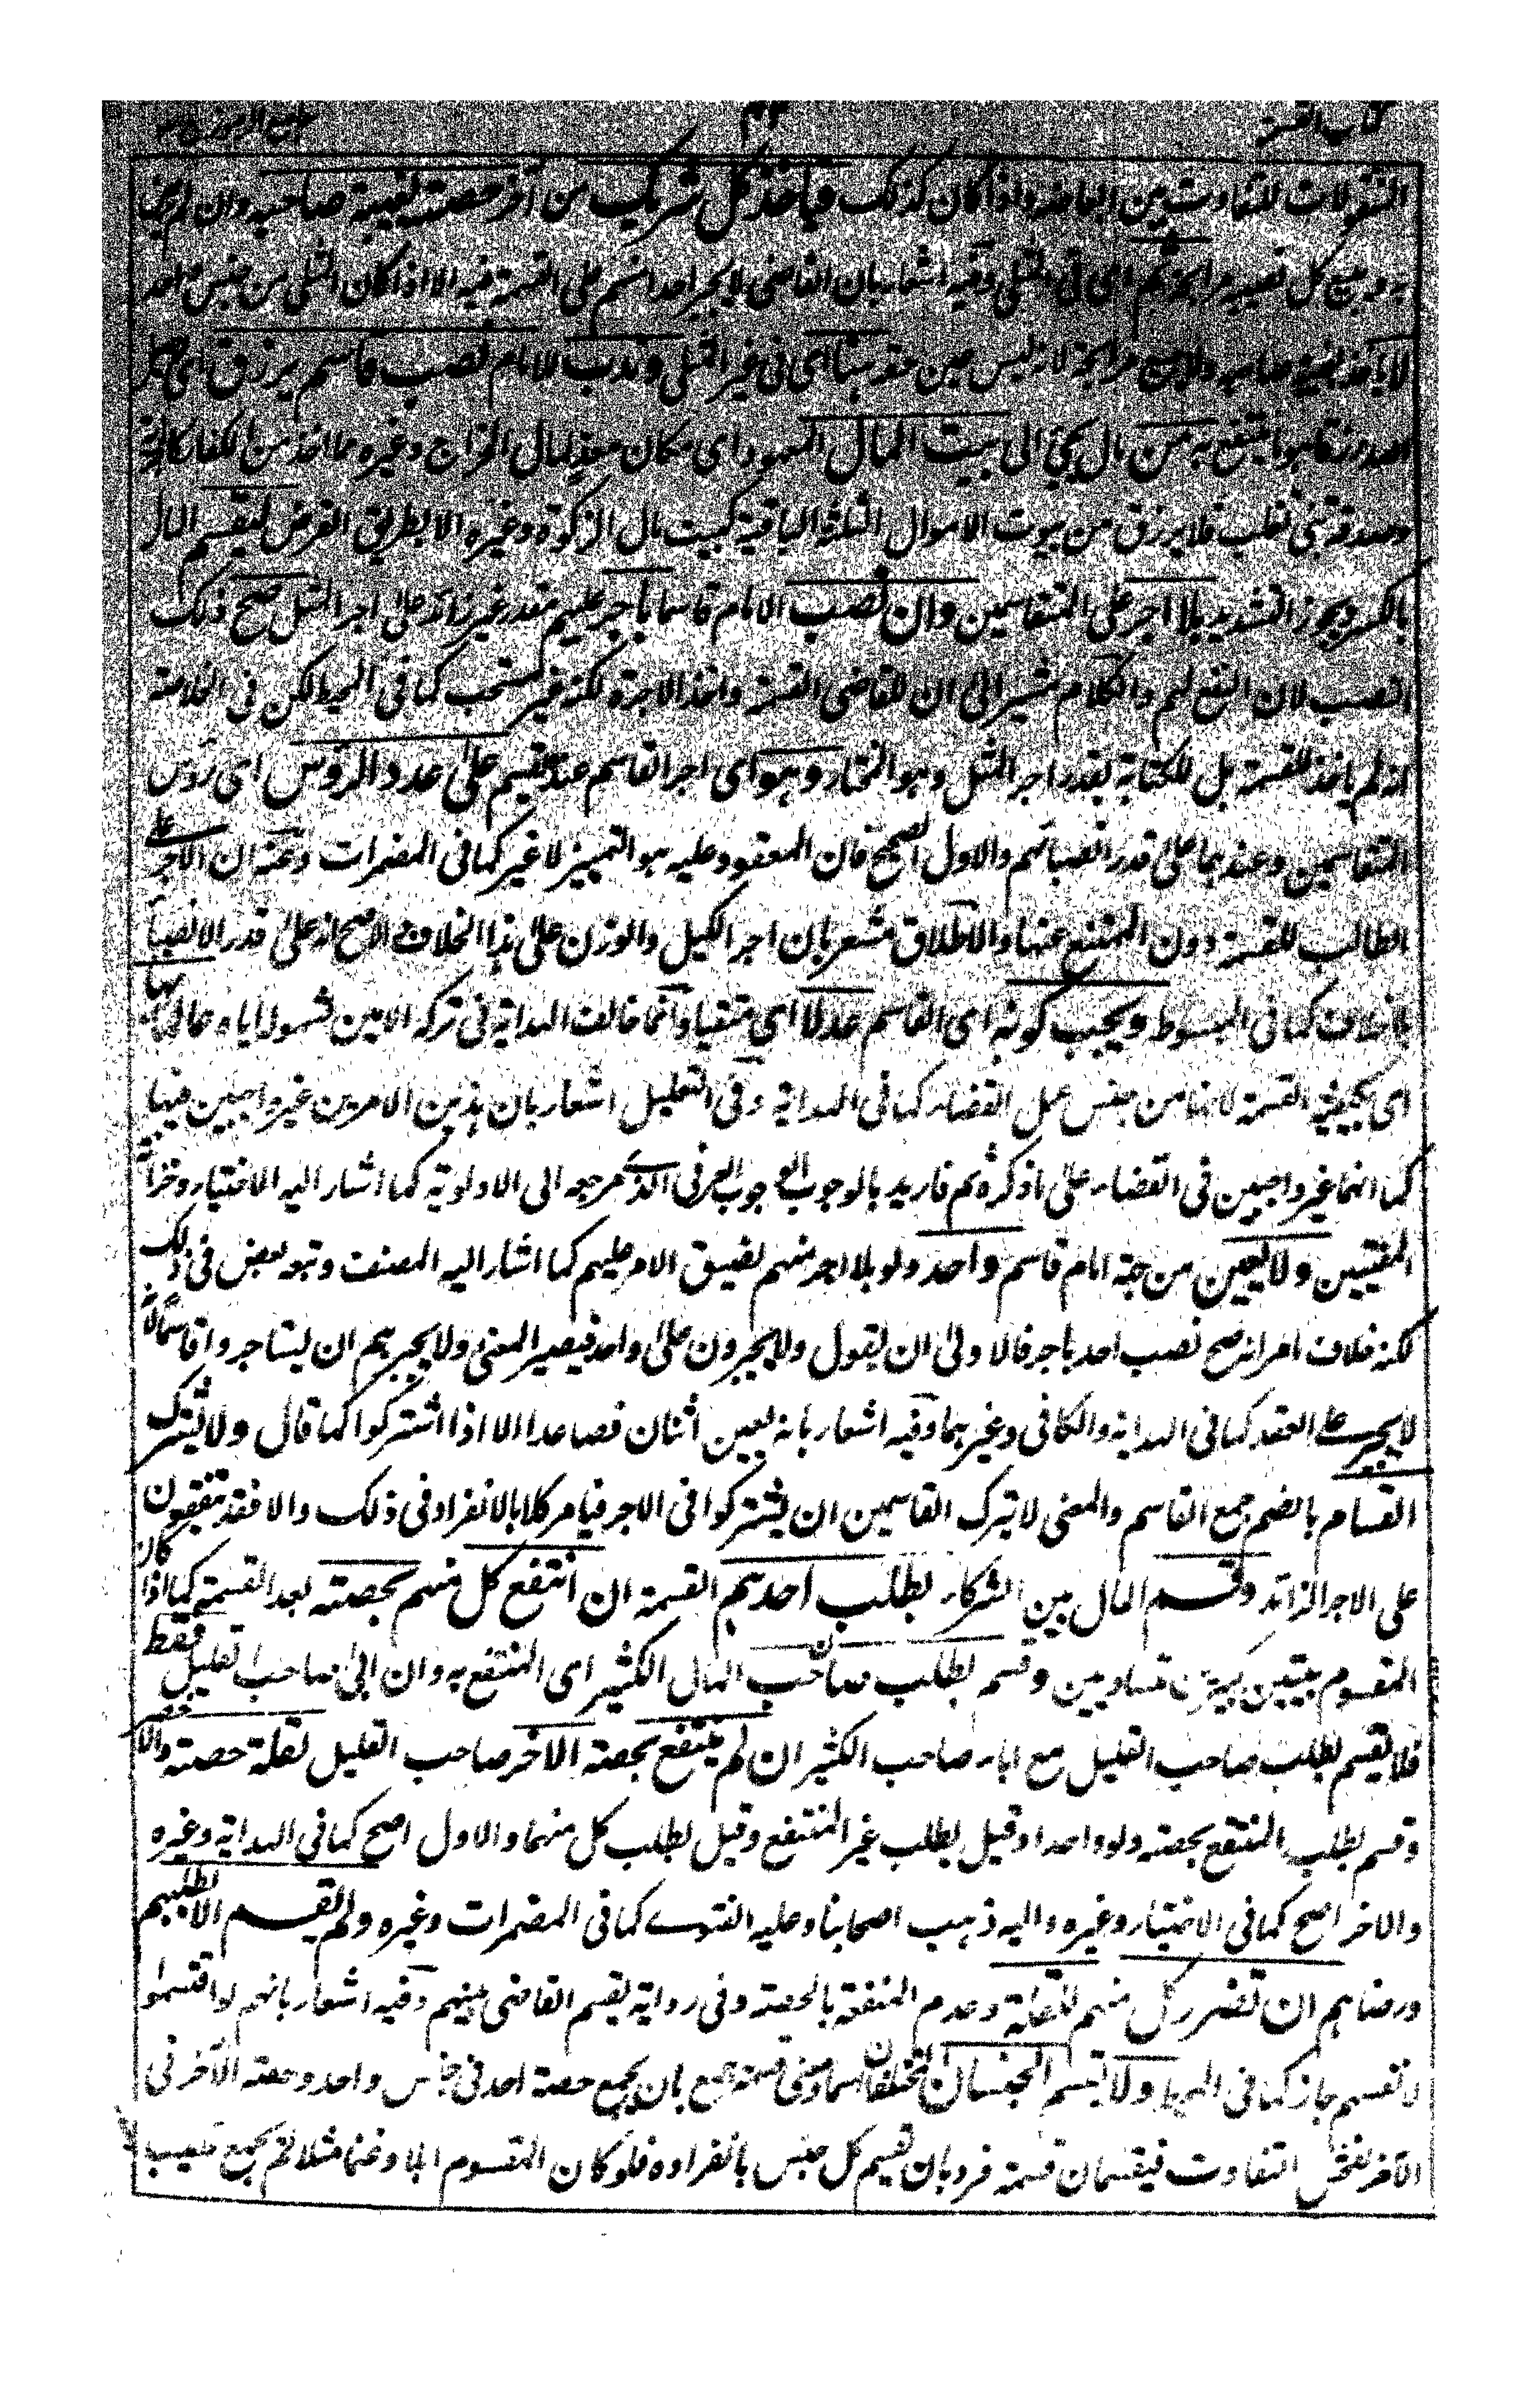 كتاب القسمة جامع الرموز
المنقولات للتفاوت بين ابعاضه واذا كان كذلك فياخذ كل شريك من آخر حصته بغيبة صاحبه وان لم يرضيا
به ويبيع كل نصيبه مرابحة ثم اى فى المثلى وفيه اشعار بان القاضى لا يجبر احدا منهم على القسمة فيه الا اذا كان المثلى من جنس واحد
لا ياخذ بغيبة صاحبه ولا يبيع مرابحة لانه ليس عين حقه هنا اى فى غير المثلى وندب للامام نصب قاسم يرزق اى
احد رزقا هو ما ينتفع به من مال يجئ الى بيت المال المعهود اى مكان معد لمال الخراج وغيره مما اخذ من الكفار كالجزية
وصدقة بنى تغلب فلا يرزق من بيوت الاموال الثلثة الباقية كبيت مال الزكوة وغيره الا بطريق القرض ليقسم المال
بالكسر ويجوز التشديد بلا اجر على المتقاسمين وان نصب الامام قاسما باجر عليهم مقدر غير زائد على اجر المثل صح ذلك
النصب لان النفع لهم والكلام مشير الى ان للقاضى القسمة واخذ الاجرة ولكنه غير مستحب كما فى المحيط لكن فى الخلاصة
انه لم ياخذ للقسمة بل للكتابة بقدر اجر المثل وهو المختار وهو اى اجر القاسم عنده يقسم على عدد الرؤس اى رؤس
المتقاسمين وعندهما على قدر انصبائهم والاول الصحيح فان المعقود عليه هو التمييز لا غير كما فى المضمرات وعنه ان الاجر على
الطالب للقسمة دون الممتنع عنها والاطلاق مشعر بان اجر الكيل والوزن على هذا الخلاف والاصح انه على قدر الانصباء
بلا خلاف كما فى المبسوط ويجب كونه اى القاسم عدلا اى متقيا وانما خالف الهداية فى تركه الامين لشموله اياه عالما بها
اى بكيفية القسمة لانها من جنس عمل القضاء كما فى الهداية وفى التعليل اشعار بان هذين الامرين غير واجبين فيها
كما انهما غير واجبين فى القضاء على ما ذكره ثم فاريد بالوجوب الوجوب العرفى الذى مرجعه الى الاولوية كما اشار اليه الاختيار وخزانة
المفتيين ولا يعين من جهة امام قاسم واحد ولو بلا اجر منهم لضيق الامر عليهم كما اشار اليه المصنف وتبعه بعض فى ذلك
لكنه خلاف ما مر انه صح نصب احد باجر فالاولى ان يقول ولا يجبرون على واحد فيصير المعنى ولا يجبرهم ان يستاجروا قاسما لانه
لا يجبر على العقد كما فى الهداية والكافى وغيرهما وفيه اشعار بانه يعين اثنان فصاعدا الا اذا اشتركوا كما قال ولا يترك
القسام بالضم جمع القاسم والمعنى لا يترك القاسمين ان يشتركوا فى الاجر فيامر كلا بالانفراد فى ذلك والا فقد يتفقون
على الاجر الزائد وقسم المال بين الشركاء بطلب احدهم القسمة ان انتفع كل منهم بحصته بعد القسمة كما اذا كان
المقسوم بيتين كبيرين متساويين وقسم بطلب صاحب المال الكثير اى المنتفع به وان ابى صاحب القليل فقط
فلا يقسم بطلب صاحب القليل مع اباء صاحب الكثير ان لم ينتفع بحصته الآخر صاحب القليل لقلة حصته والا
وقسم بطلب المنتفع بحصته ولو واحدا وقيل بطلب غير المنتفع وقيل بطلب كل منهما والاول اصح كما فى الهداية وغيره
والآخر اصح كما فى الاختيار وغيره واليه ذهب اصحابنا وعليه الفتوى كما فى المضمرات وغيره ولم يقسم الا بطلبهم
ورضاهم ان تضرر كل منهم للقلة وعدم المنفعة بالحصته وفى رواية يقسم القاضى بينهم وفيه اشعار بانهم لو اقتسموا
لا نفسهم جاز كما فى المحيط ولا يقسم الجنسان المختلفان اسما ومعنى قسمة جمع بان يجمع حصة احد فى جنس واحد وحصة الآخر فى
الآخر لفحش التفاوت فيقسمان قسمة فرد بان يقسم كل جنس بانفراده فلو كان المقسوم ابلا وغنما مثلا لم يجمع نصيب